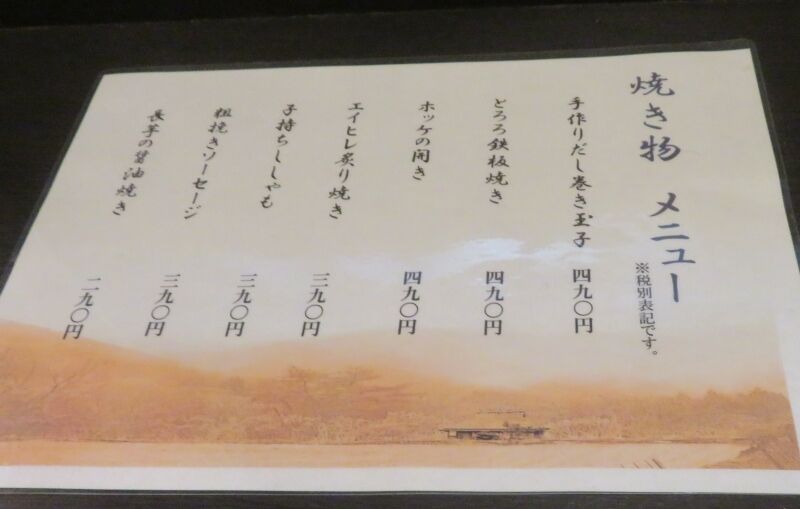 焼き物 メニュー
※税別表記です。
手作りだし巻き玉子 四九〇円
とろろ鉄板焼き 四九〇円
ホッケの開き 四九〇円
エイヒレ炙り焼き 三九〇円
子持ちししゃも 三九〇円
粗挽きソーセージ 三九〇円
長芋の醤油焼き 二九〇円